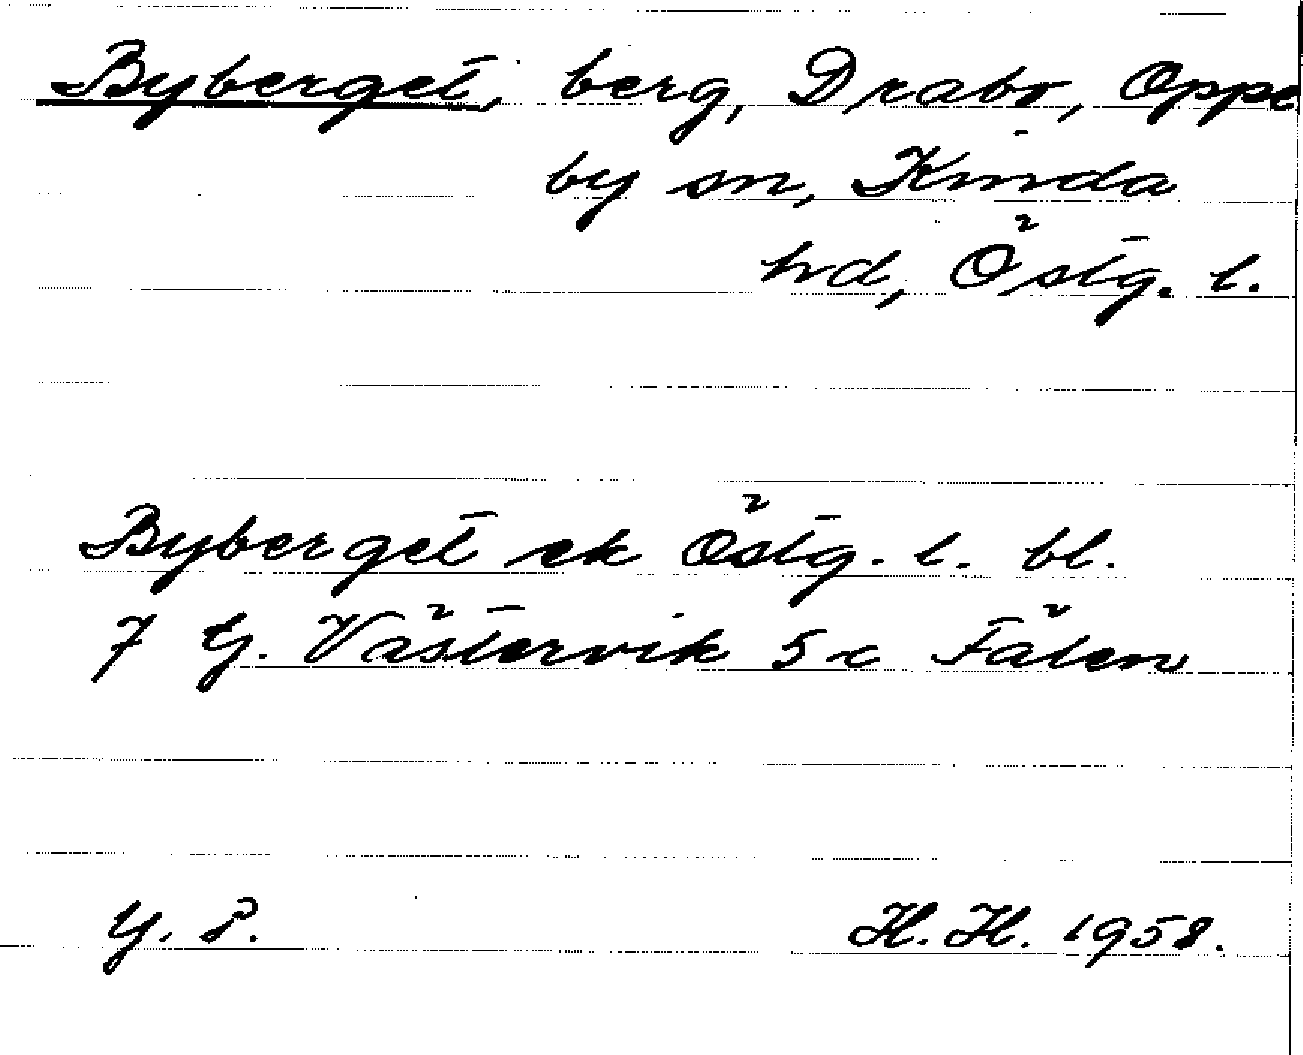 Byberget, berg, Drabo, Oppe
by sn, Kinda
hd, Östg. l.
Byberget ek Östg. l. bl.
7 Y. Västervik 5 c Fålen
Y. P. H. H. 1958.